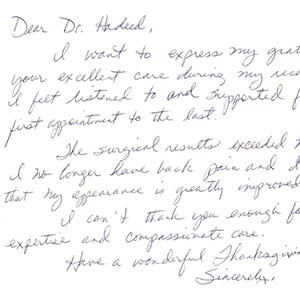 Dear Dr. Hadeed,
I want to express my grat
your excellent care during my rece
I felt listened to and supported f
first appointment to the last.
The surgical results exceeded m
I no longer have back pain and d
that my appearance is greatly improved
I can't thank you enough fo
expertise and compassionate care.
Have a wonderful Thanksgivin
Sincerely,